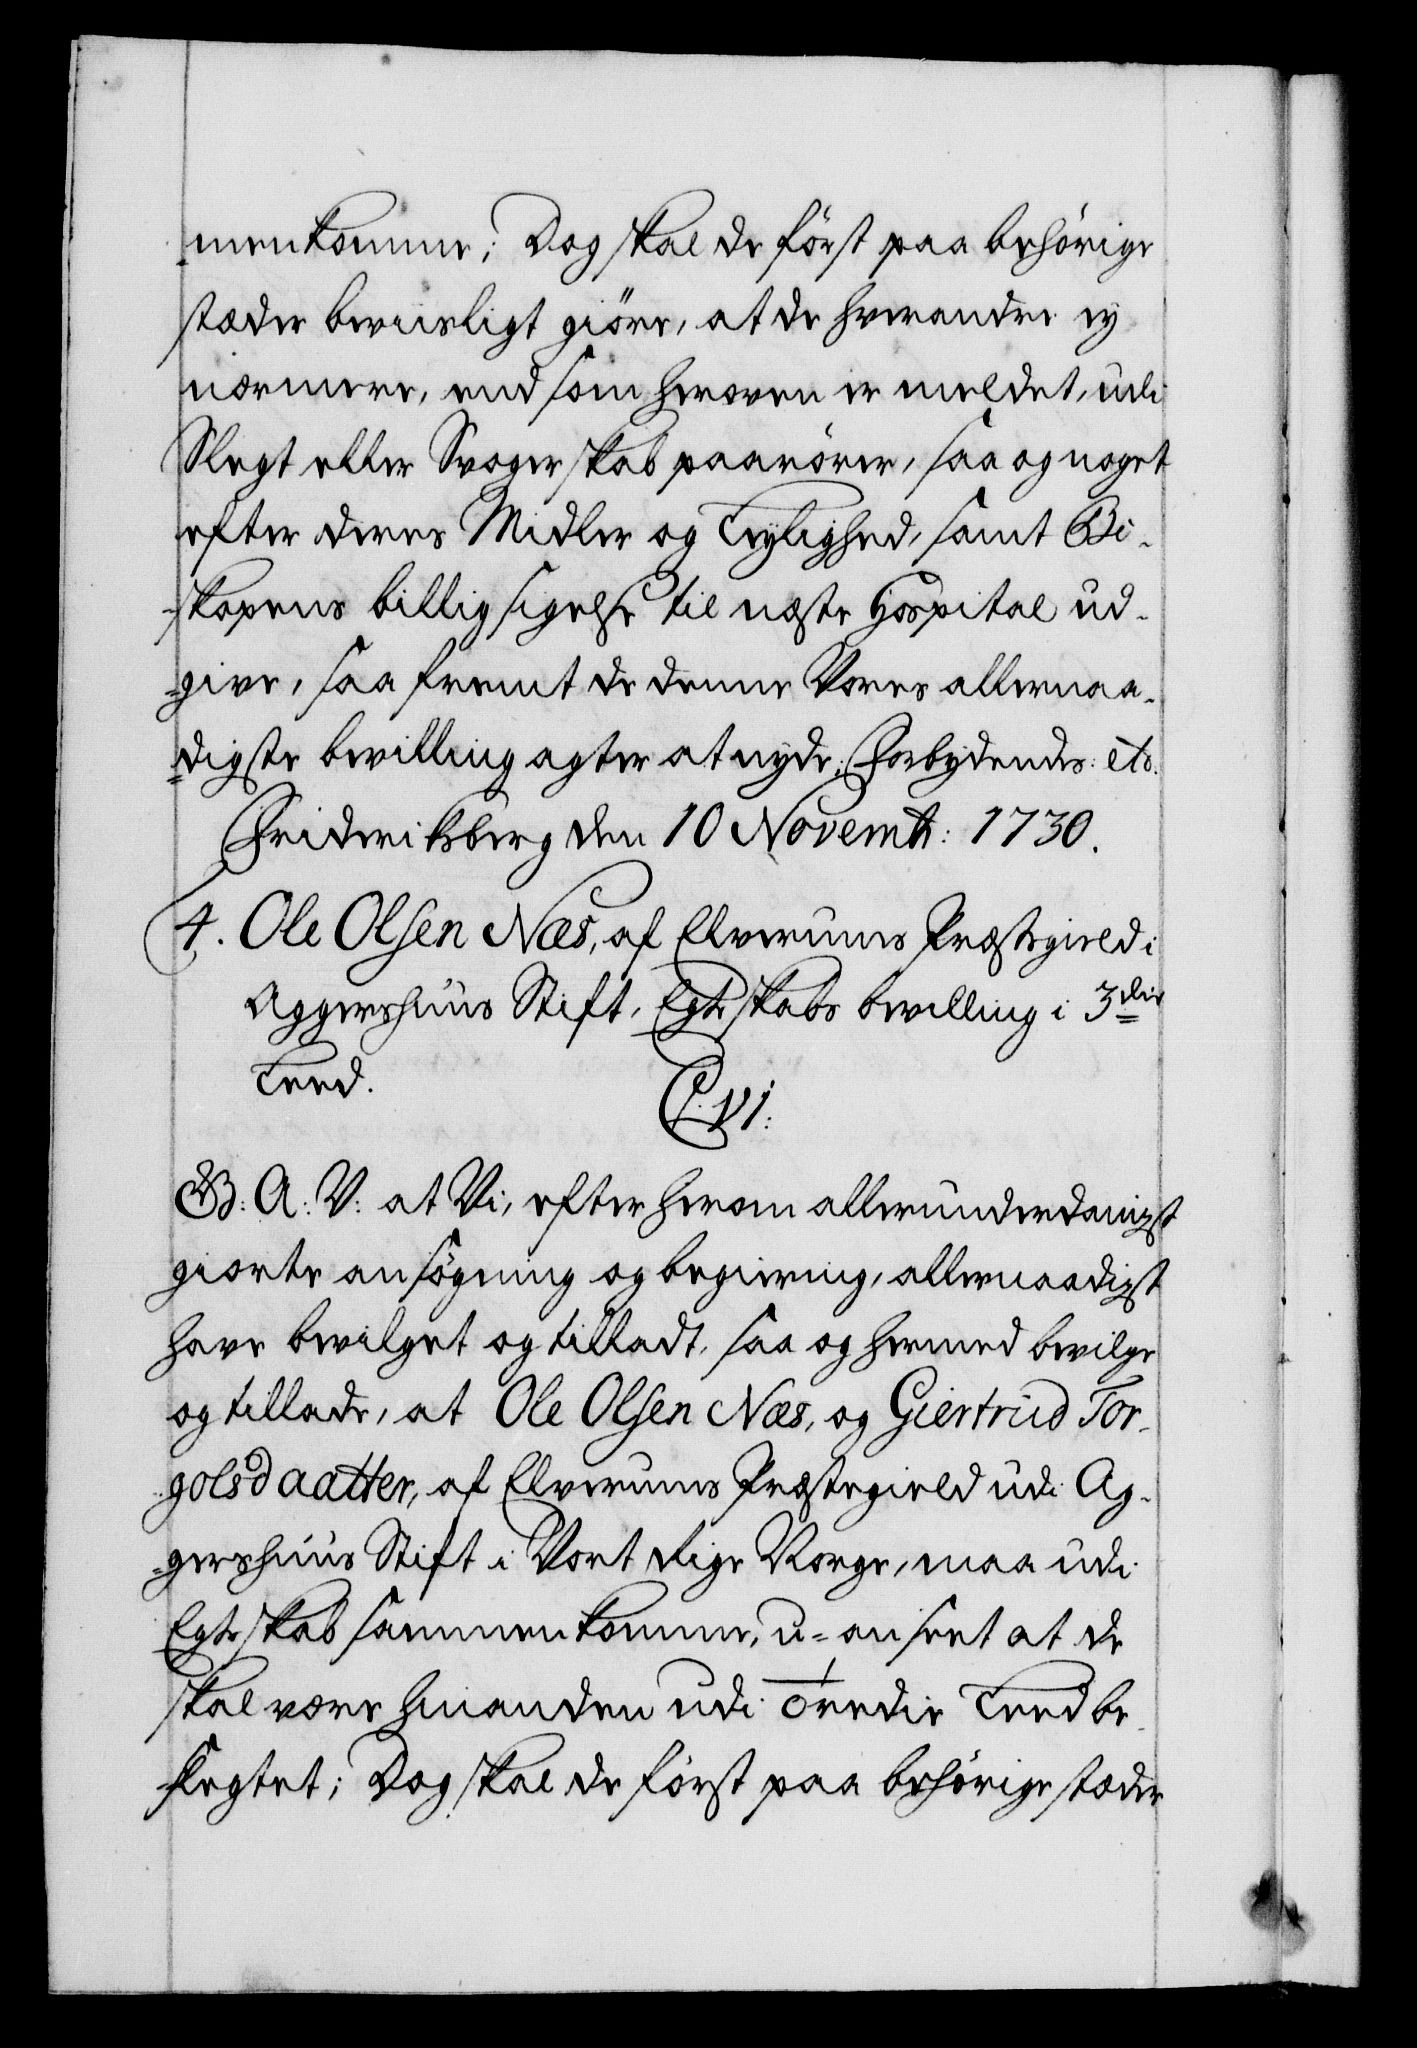 menkomme; Dog skal de först paa behörige
stæder beviisligt giöre, at de hverandre ey
nærmere, end som heroven er meldet, udi
Slegt eller Svogerskab paarörer, saa og noget
efter deres Midler og Leylighed, samt Bi-
-skopens billigsigelse til næste Hospital ud-
-give, saa fremt de denne Vores allernaa-
-digste bevilling agter at nyde; Forbydendes: etc.
Friderichsberg den 10 Novembr: 1730.
4. Ole Olsen Næs, af Elverums Præstegield i
Aggershuus Stift, Egteskabs bevilling i 3die
Leed.
C. VI.
G.B: A: V: at Vi, efter herom allerunderdanigst
giorte ansögning og begiering, allernaadigst
have bevilget og tilladt, saa og hermed bevilge
og tillade, at Ole Olsen Næs, og Giertrud Tor-
golsdaatter, af Elverums Præstegield udi Ag-
-gershuus Stift i Vort Rige Norge, maa udi
Egteskab sammenkomme, u-anseet at de
skal være hinanden udi Tredie Leed be-
slegtet; Dog skal de först paa behörige stæder